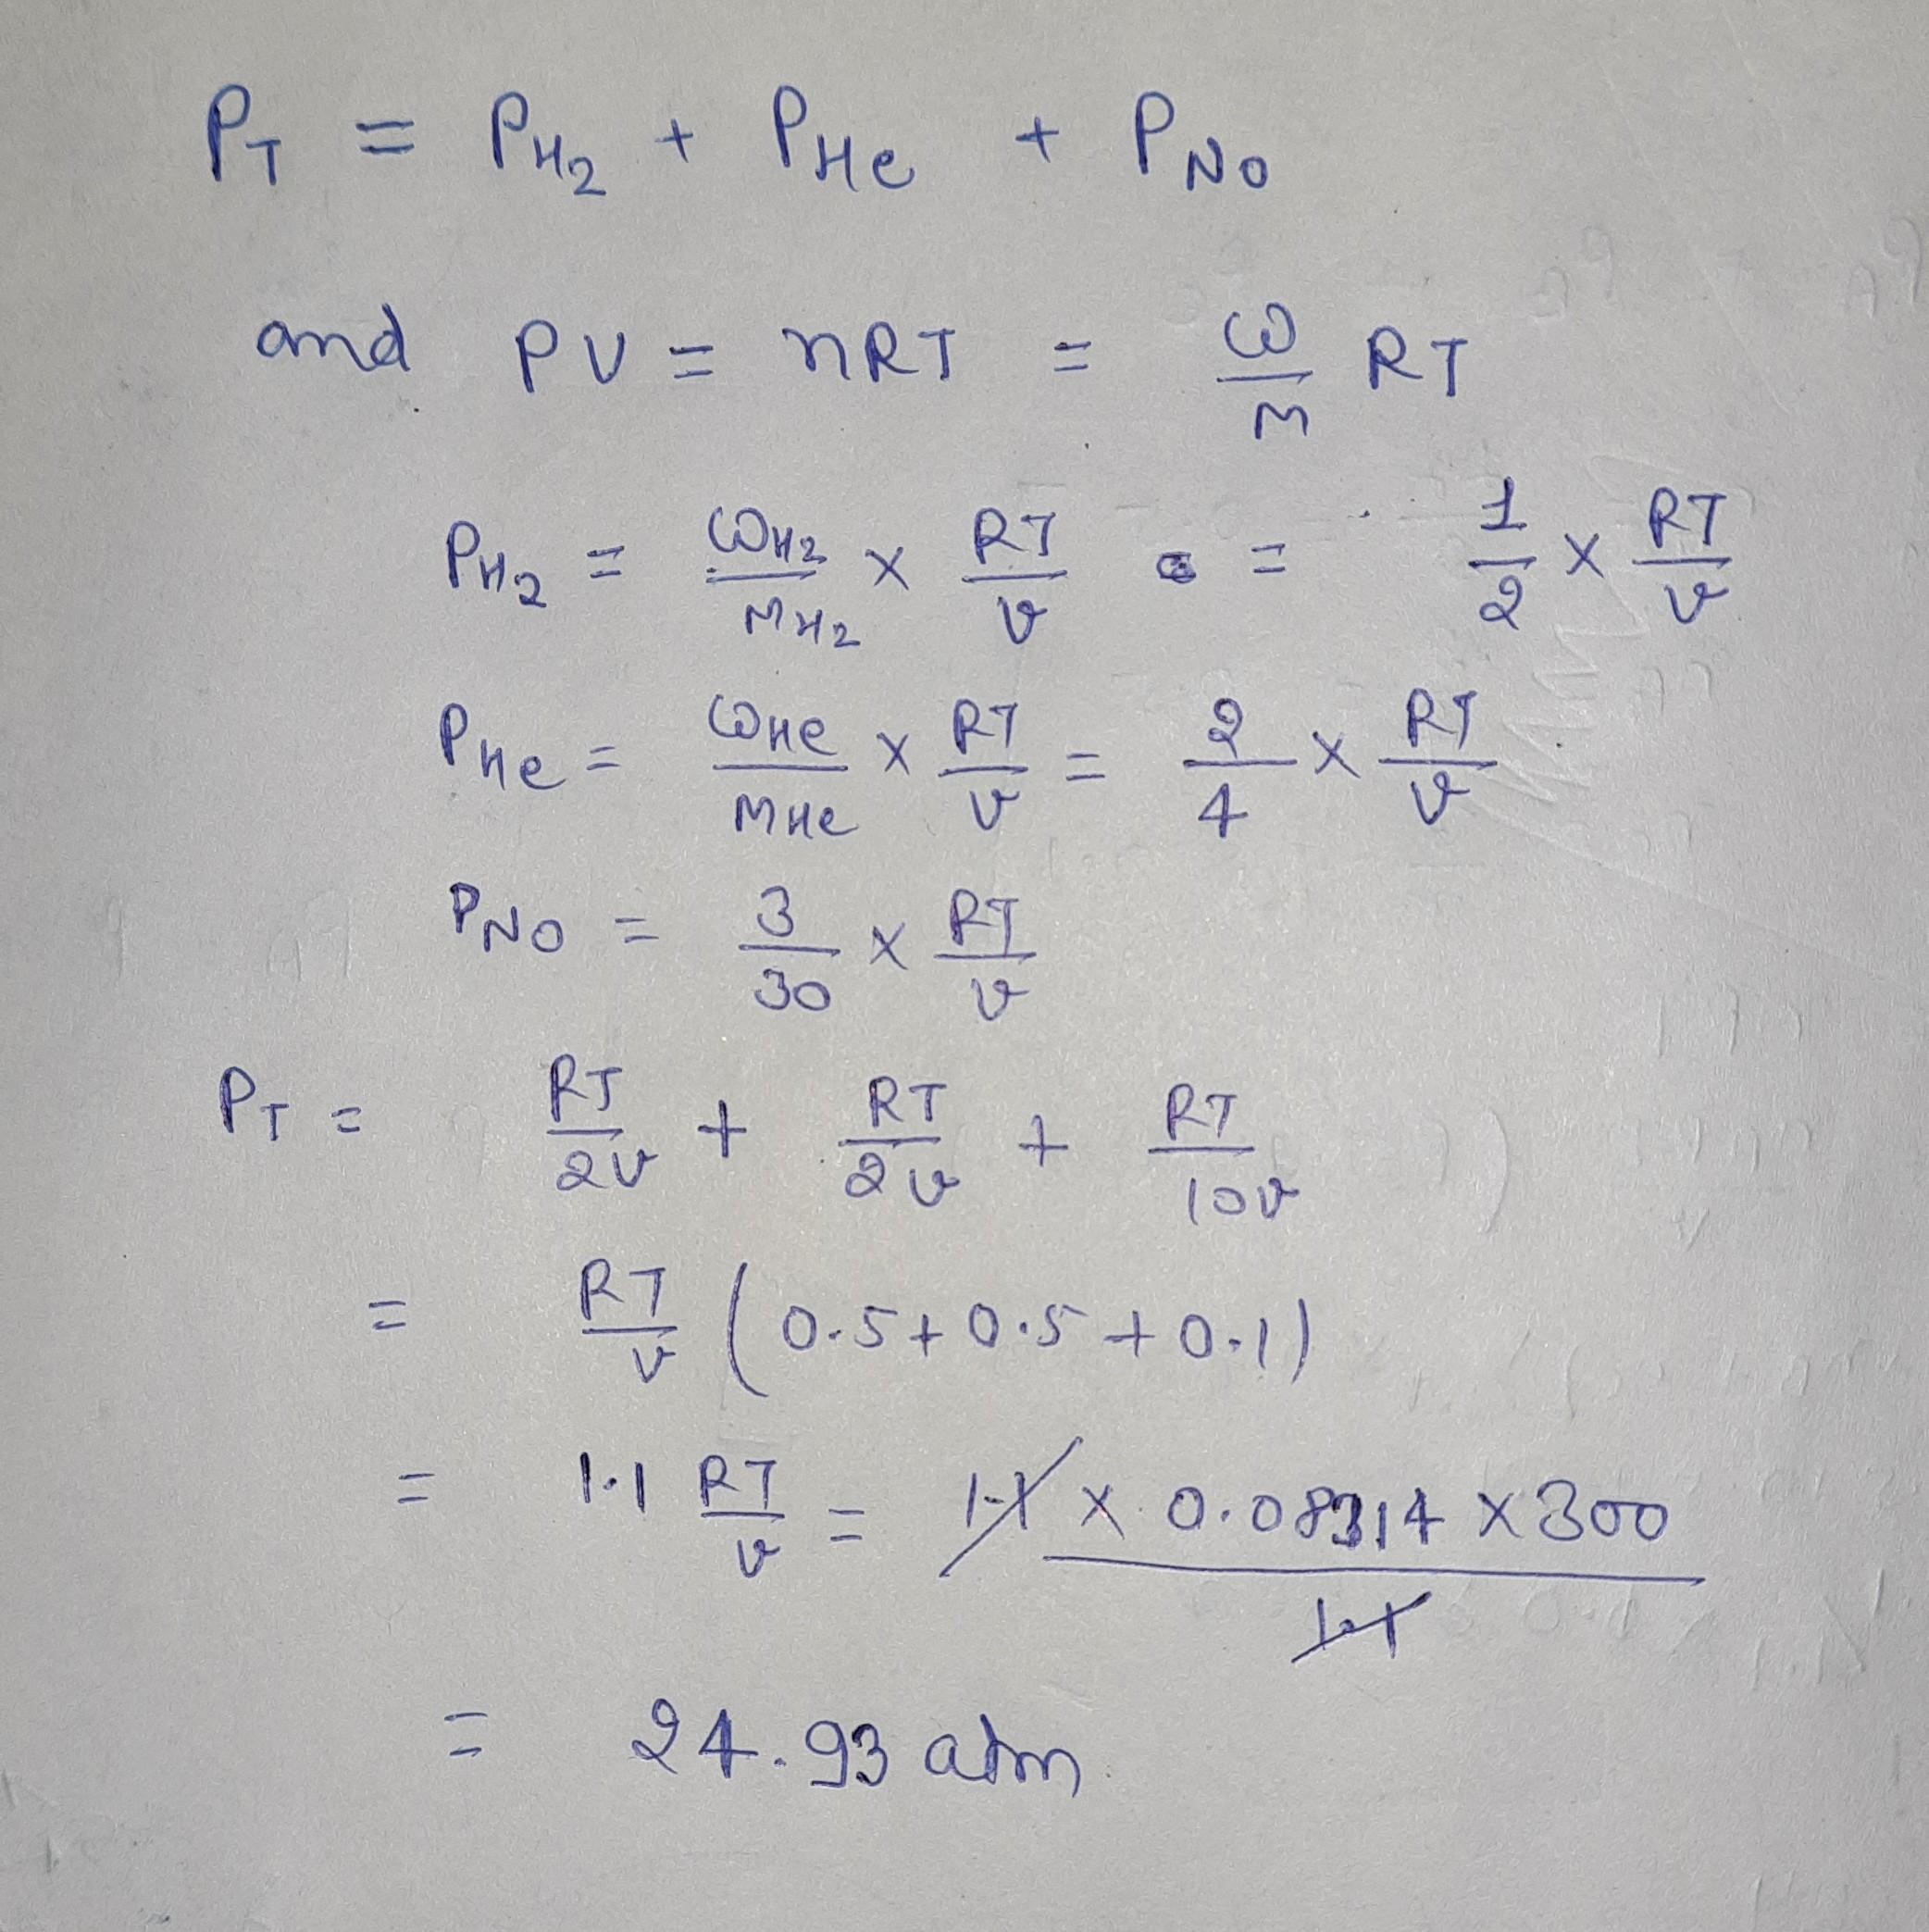 P_T = P_H2 + P_He + P_NO
and PV = nRT = ω/m RT
P_H2 = ω_H2/m_H2 × RT/v = 1/2 × RT/v
P_He = ω_He/m_He × RT/v = 2/4 × RT/v
P_NO = 3/30 × RT/v
P_T = RT/2v + RT/2v + RT/10v
= RT/v (0.5+0.5+0.1)
= 1.1 RT/v = 1.1 × 0.08314 × 300 / 1.1
= 24.93 atm